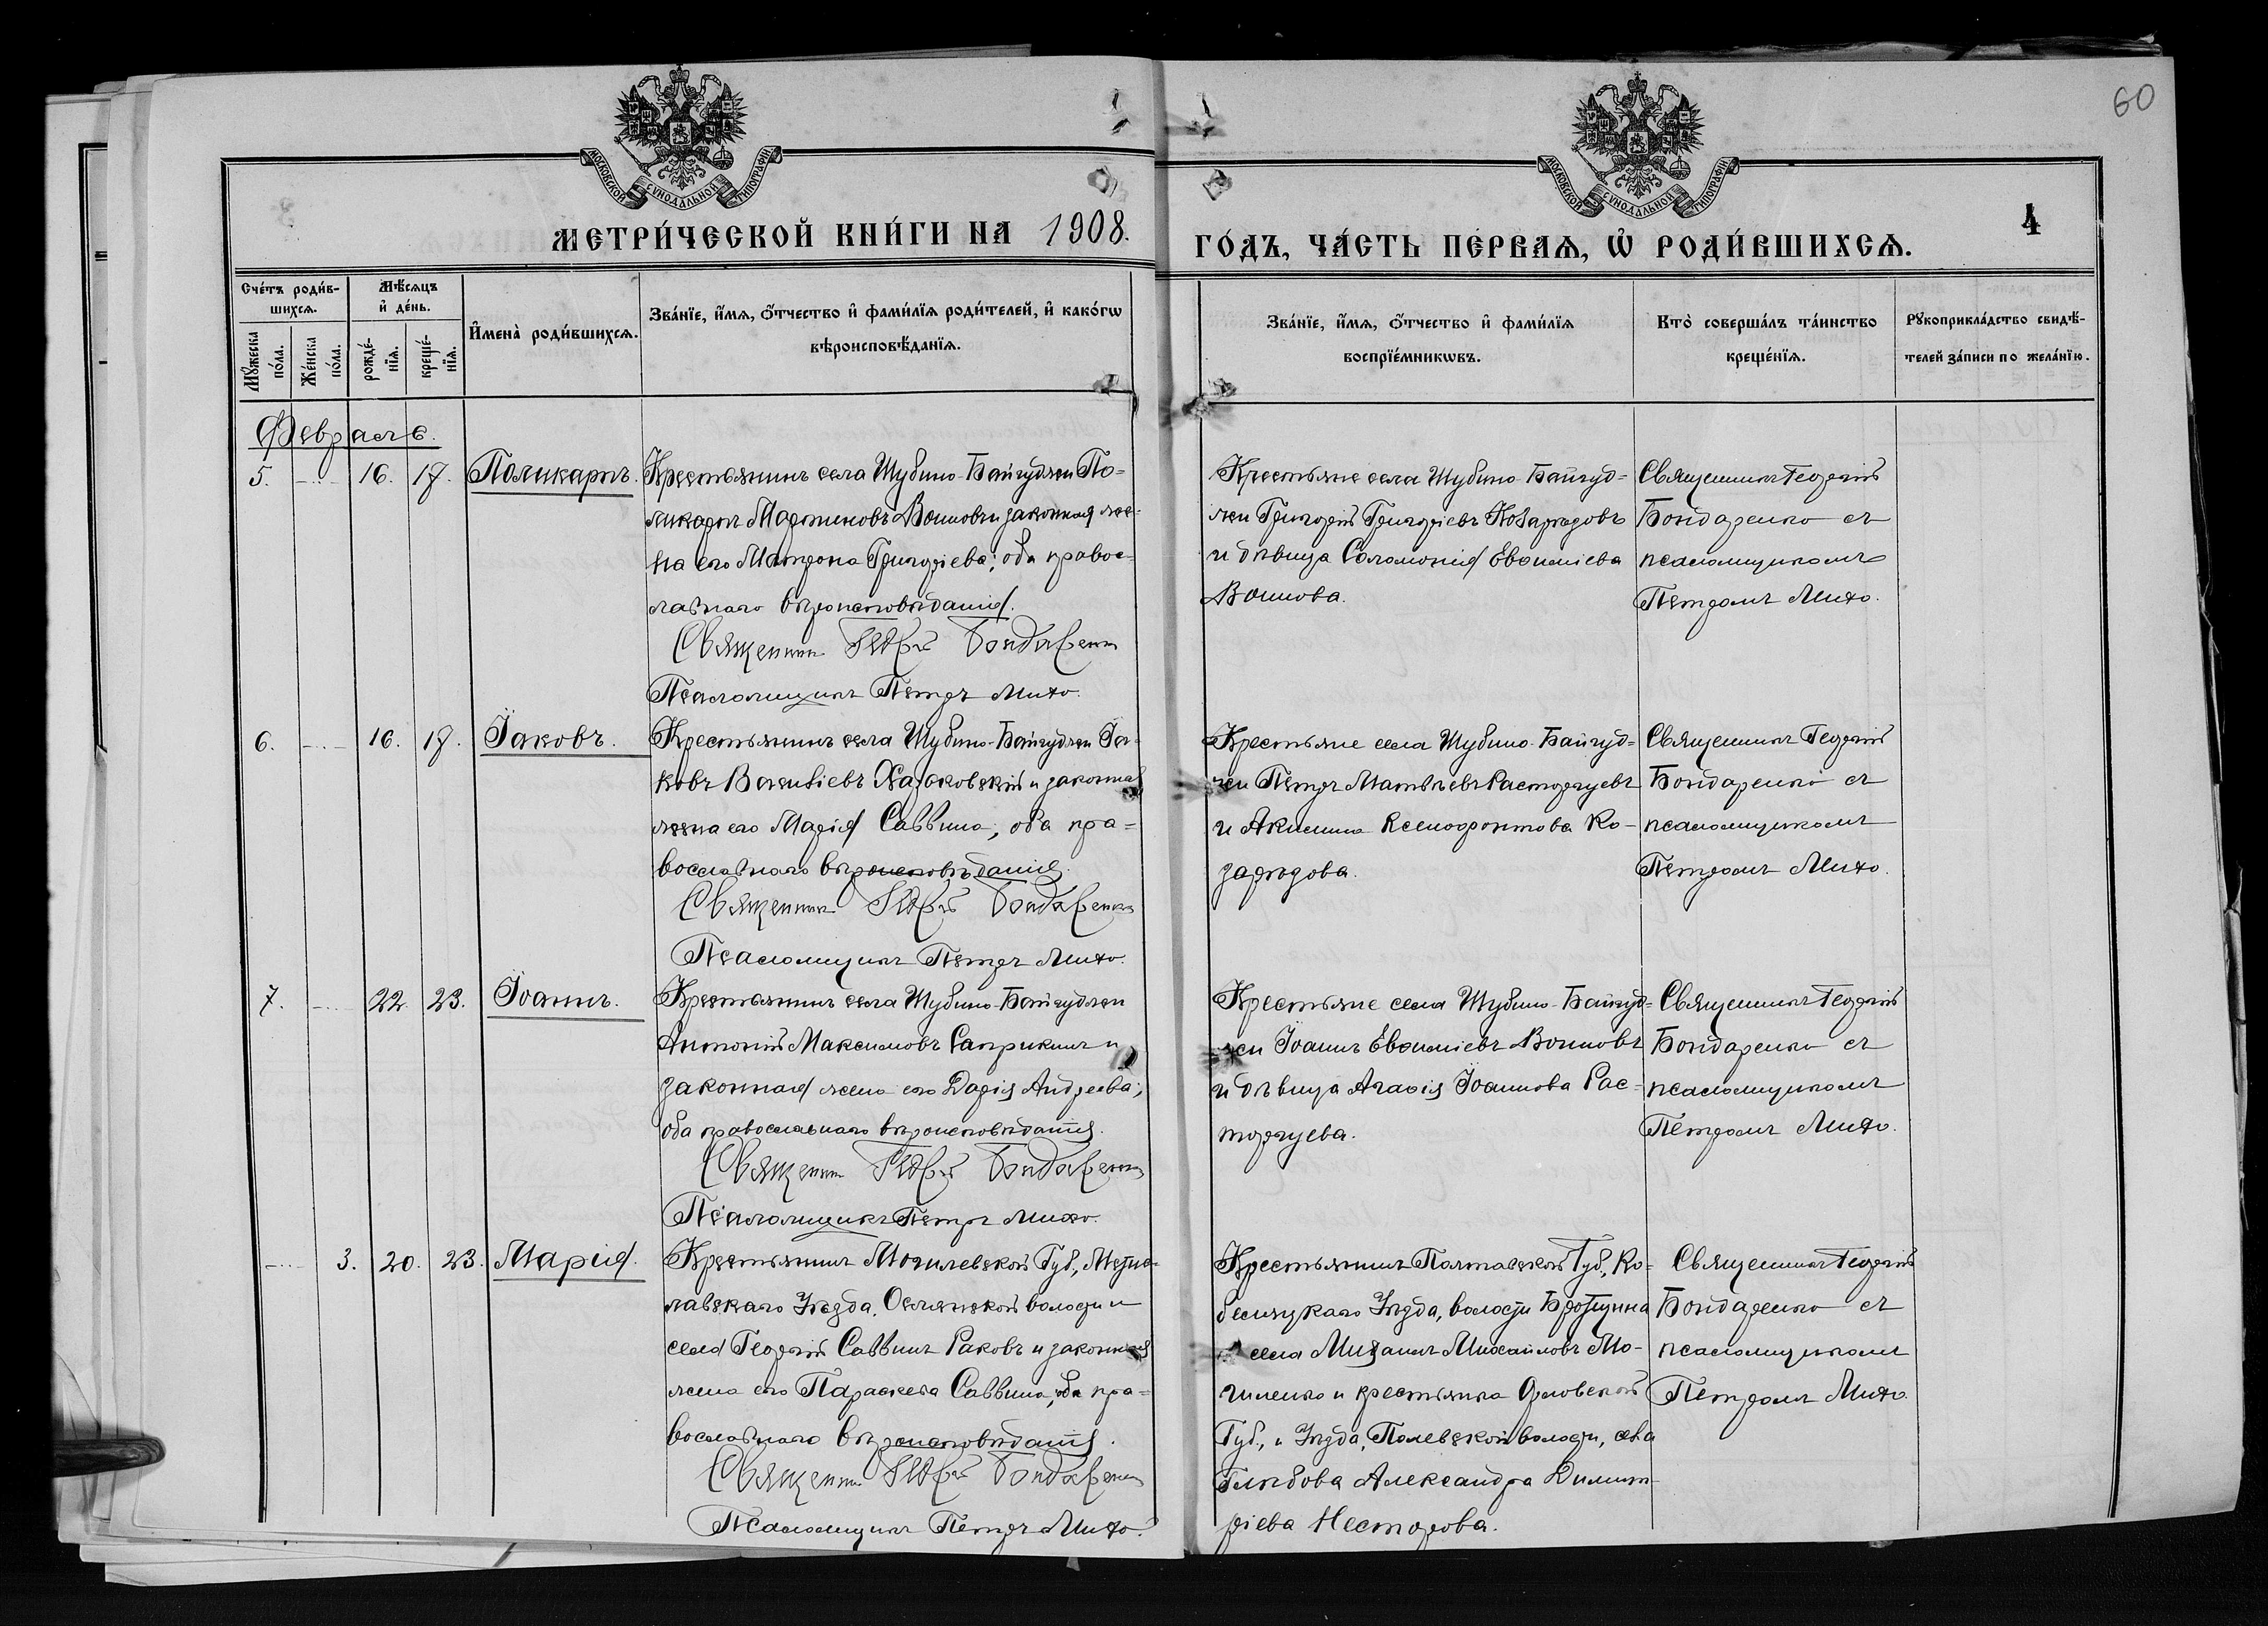 60
МОСКОВСКОЙ СѴНОДАЛЬНОЙ ТИПОГРАФІИ
МОСКОВСКОЙ СѴНОДАЛЬНОЙ ТИПОГРАФІИ
МЕТРИ́ЧЕСКОЙ КНИ́ГИ НА 1908.
ГО́ДЪ, ЧА́СТЬ ПЕ́РВАѦ, Ѡ҆ РОДИ́ВШИХСѦ.
4
Сче́тъ роди́в-
шихсѧ.
Мꙋ́жеска
по́ла.
Же́нска
по́ла.
Мѣ́сѧцъ
и҆ де́нь.
рожде́-
нїѧ.
креще́-
нїѧ.
И҆мена̀ роди́вшихсѧ.
Зва́нїе, и҆́мѧ, ѻ҆́тчество и҆ фами́лїѧ роди́телей, и҆ како́гѡ
вѣроисповѣ́данїѧ.
Зва́нїе, и҆́мѧ, ѻ҆́тчество и҆ фами́лїѧ
воспрїе́мникѡвъ.
Кто̀ соверша́лъ та́инство
креще́нїѧ.
Рꙋкоприкла́дство свидѣ́-
телей за́писи по жела́нїю.
Февраль.
5. 16. 17. Поликарпъ.
Крестьянинъ села Шубино-Байгуджи По-
ликарпъ Мартиновъ Воиновъ и законная же-
на его Матрона Григоріева; оба правос-
лавнаго вѣроисповѣданія.
Священникъ Георгій Бондаренко
Псаломщикъ Петръ Михо.
Крестьяне села Шубино-Байгуд-
жи Григорій Григоріевъ Козарѣзовъ
и дѣвица Соломонія Евѳиміева
Воинова.
Священникъ Георгій
Бондаренко съ
псаломщикомъ
Петромъ Михо.
6. 16. 17. Іаковъ.
Крестьянинъ села Шубино-Байгуджи Іа-
ковъ Васильевъ и законная
жена его Марія Саввина, оба пра-
вославнаго вѣроисповѣданія.
Священникъ Георгій Бондаренко
Псаломщикъ Петръ Михо.
Крестьяне села Шубино-Байгуд-
жи Петръ Матвѣевъ Расторгуевъ
и Акилина Ксенофонтова Ко-
зарѣзова.
Священникъ Георгій
Бондаренко съ
псаломщикомъ
Петромъ Михо.
7. 22. 23. Іоаннъ.
Крестьянинъ села Шубино-Байгуджи
Антоній Максимовъ Саприкинъ и
законная жена его Дарія Андреева;
оба православнаго вѣроисповѣданія.
Священникъ Георгій Бондаренко
Псаломщикъ Петръ Михо.
Крестьяне села Шубино-Байгуд-
жи Іоаннъ Евѳиміевъ Воиновъ
и дѣвица Агаѳія Іоаннова Рас-
торгуева.
Священникъ Георгій
Бондаренко съ
псаломщикомъ
Петромъ Михо.
3. 20. 23. Марія.
Крестьянинъ Могилевской Губ., Мстис-
лавскаго Уѣзда, волости и
села Георгій Саввинъ Раковъ и законная
жена его Параскева Саввина, оба пра-
вославнаго вѣроисповѣданія.
Священникъ Георгій Бондаренко
Псаломщикъ Петръ Михо.
Крестьянинъ Полтавской Губ., Ко-
белякскаго Уѣзда, волости
села Михаилъ Михайловъ Мо-
гиленко и крестьянка Орловской
Губ., и Уѣзда, волости, села
Глѣбова Александра Димит-
ріева Несторова.
Священникъ Георгій
Бондаренко съ
псаломщикомъ
Петромъ Михо.